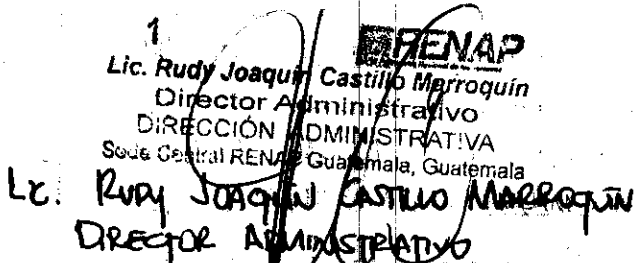 1
RENAP
Lic. Rudy Joaquin Castillo Marroquín
Director Administrativo
DIRECCIÓN ADMINISTRATIVA
Sede Central RENAP Guatemala, Guatemala
Lic. RUDY JOAQUÍN CASTILLO MARROQUÍN
DIRECTOR ADMINISTRATIVO